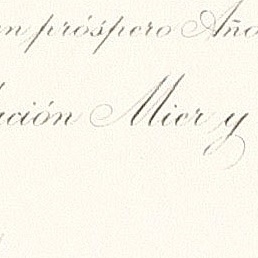 n próspero Año
ación Mier y